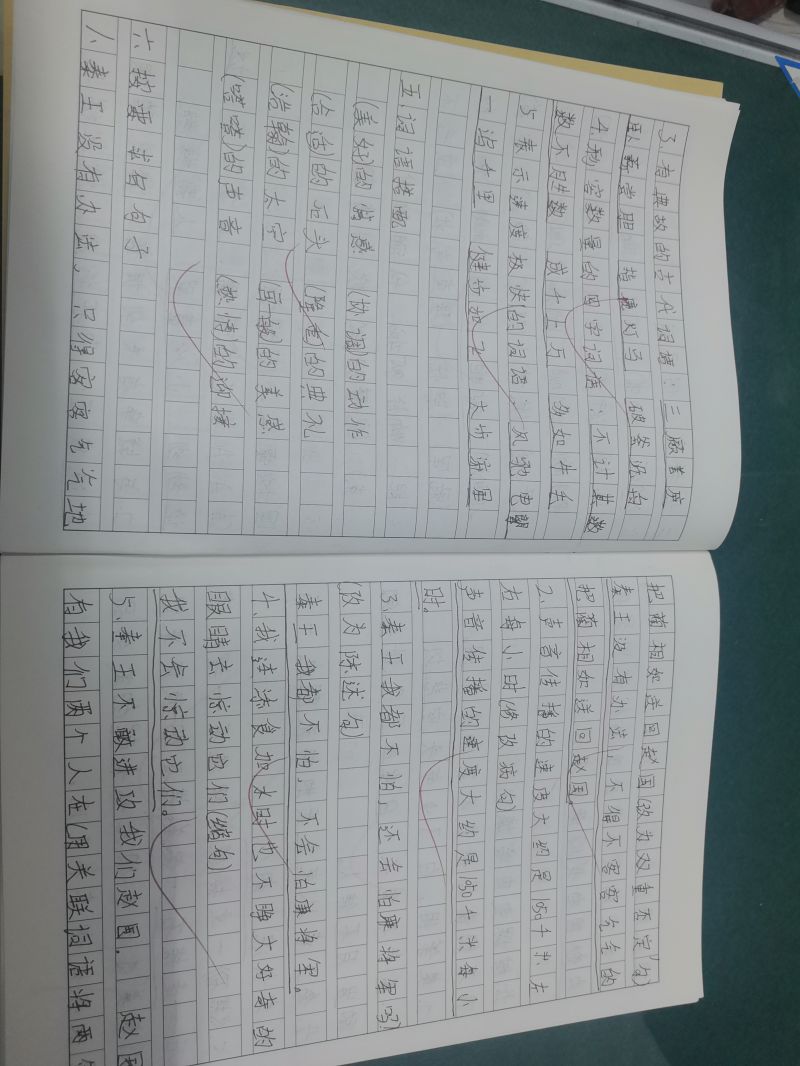 3.有典故的古代词语:三顾茅庐
卧薪尝胆 指鹿为马 破釜沉舟
4.形容数量的四字词语:不计其数
数不胜数 成千上万 多如牛毛
5.表示速度极快的词语:风驰电掣
一泻千里 健步如飞 大步流星
五、词语搭配
(美好)的情感 (协调)的动作
(合适)的石头 (隆重)的典礼
(浩瀚)的太空 (异样)的美感
(嘈嘈)的声音 (热情)的迎接
六、按要求写句子
1、秦王没有办法,只得客客气气地
把蔺相如送回赵国(改为双重否定句)
秦王没有办法,不得不客客气气的
把蔺相如送回赵国。
2、声音传播的速度大约是1050千米左
右每小时(修改病句)
声音传播的速度大约是1050千米每小
时。
3、秦王我都不怕,还会怕廉将军吗?
(改为陈述句)
秦王我都不怕,不会怕廉将军。
4、我连添食加水时也不睁大好奇的
眼睛去惊动它们(缩句)
我不会惊动它们。
5、秦王不敢进攻我们赵国。 赵国
有我们两个人在(用关联词语将两